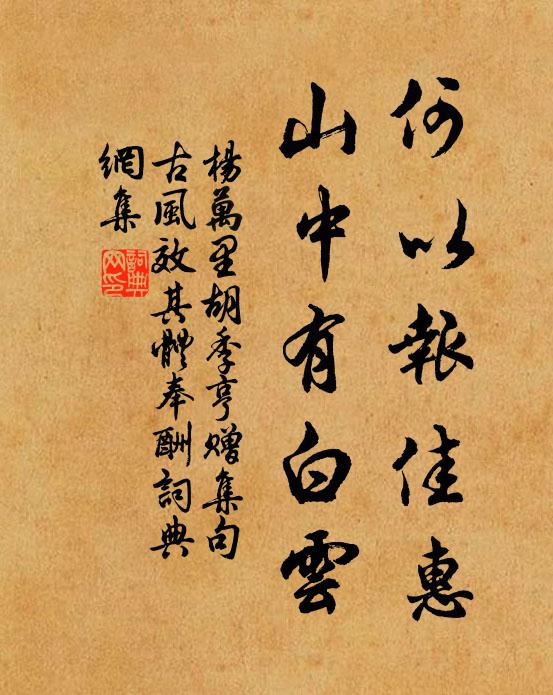 何以報佳惠
山中有白雲
楊萬里胡季亨贈集句
古風效其體奉酬詞典
網集
詞典網印